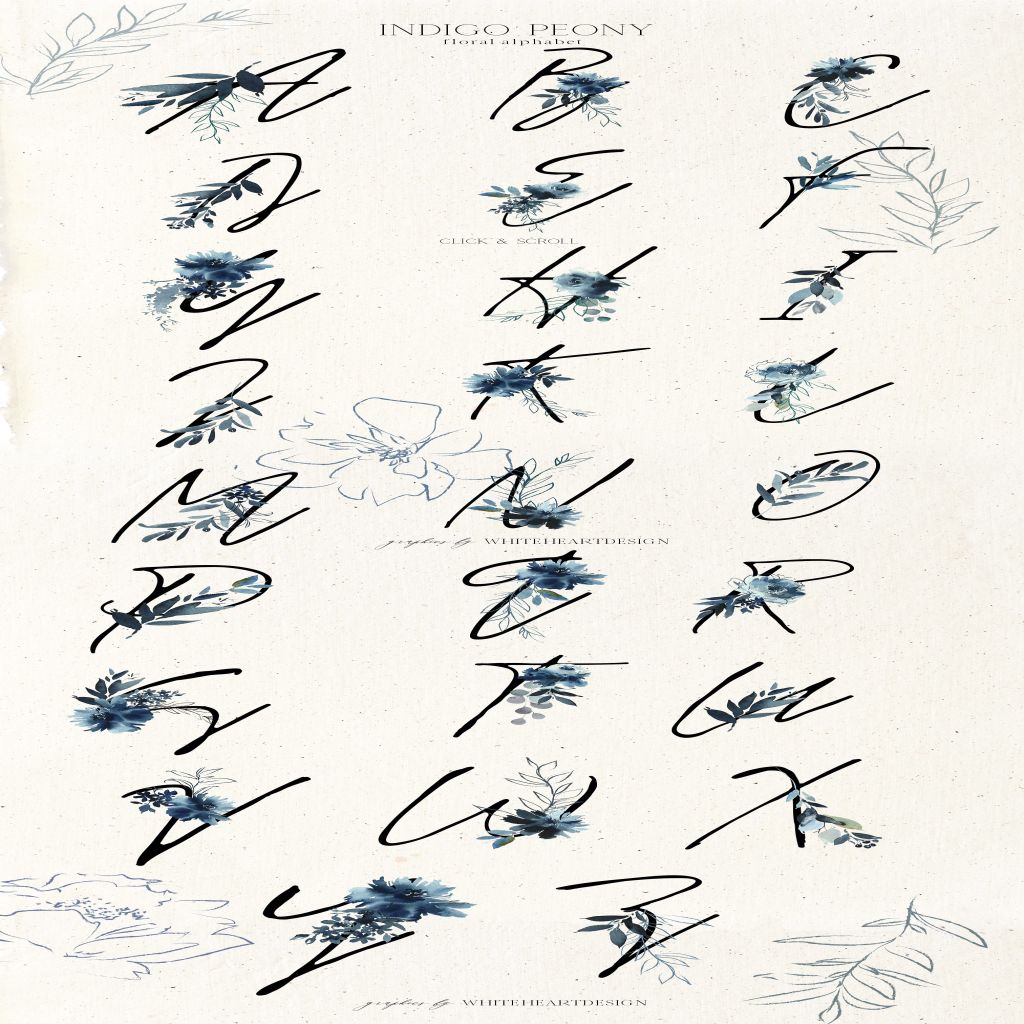 INDIGO PEONY
floral alphabet
A B C
D E F
CLICK & SCROLL
G H I
J K L
M N O
graphics by WHITEHEARTDESIGN
P Q R
S T U
V W X
Y Z
graphics by WHITEHEARTDESIGN